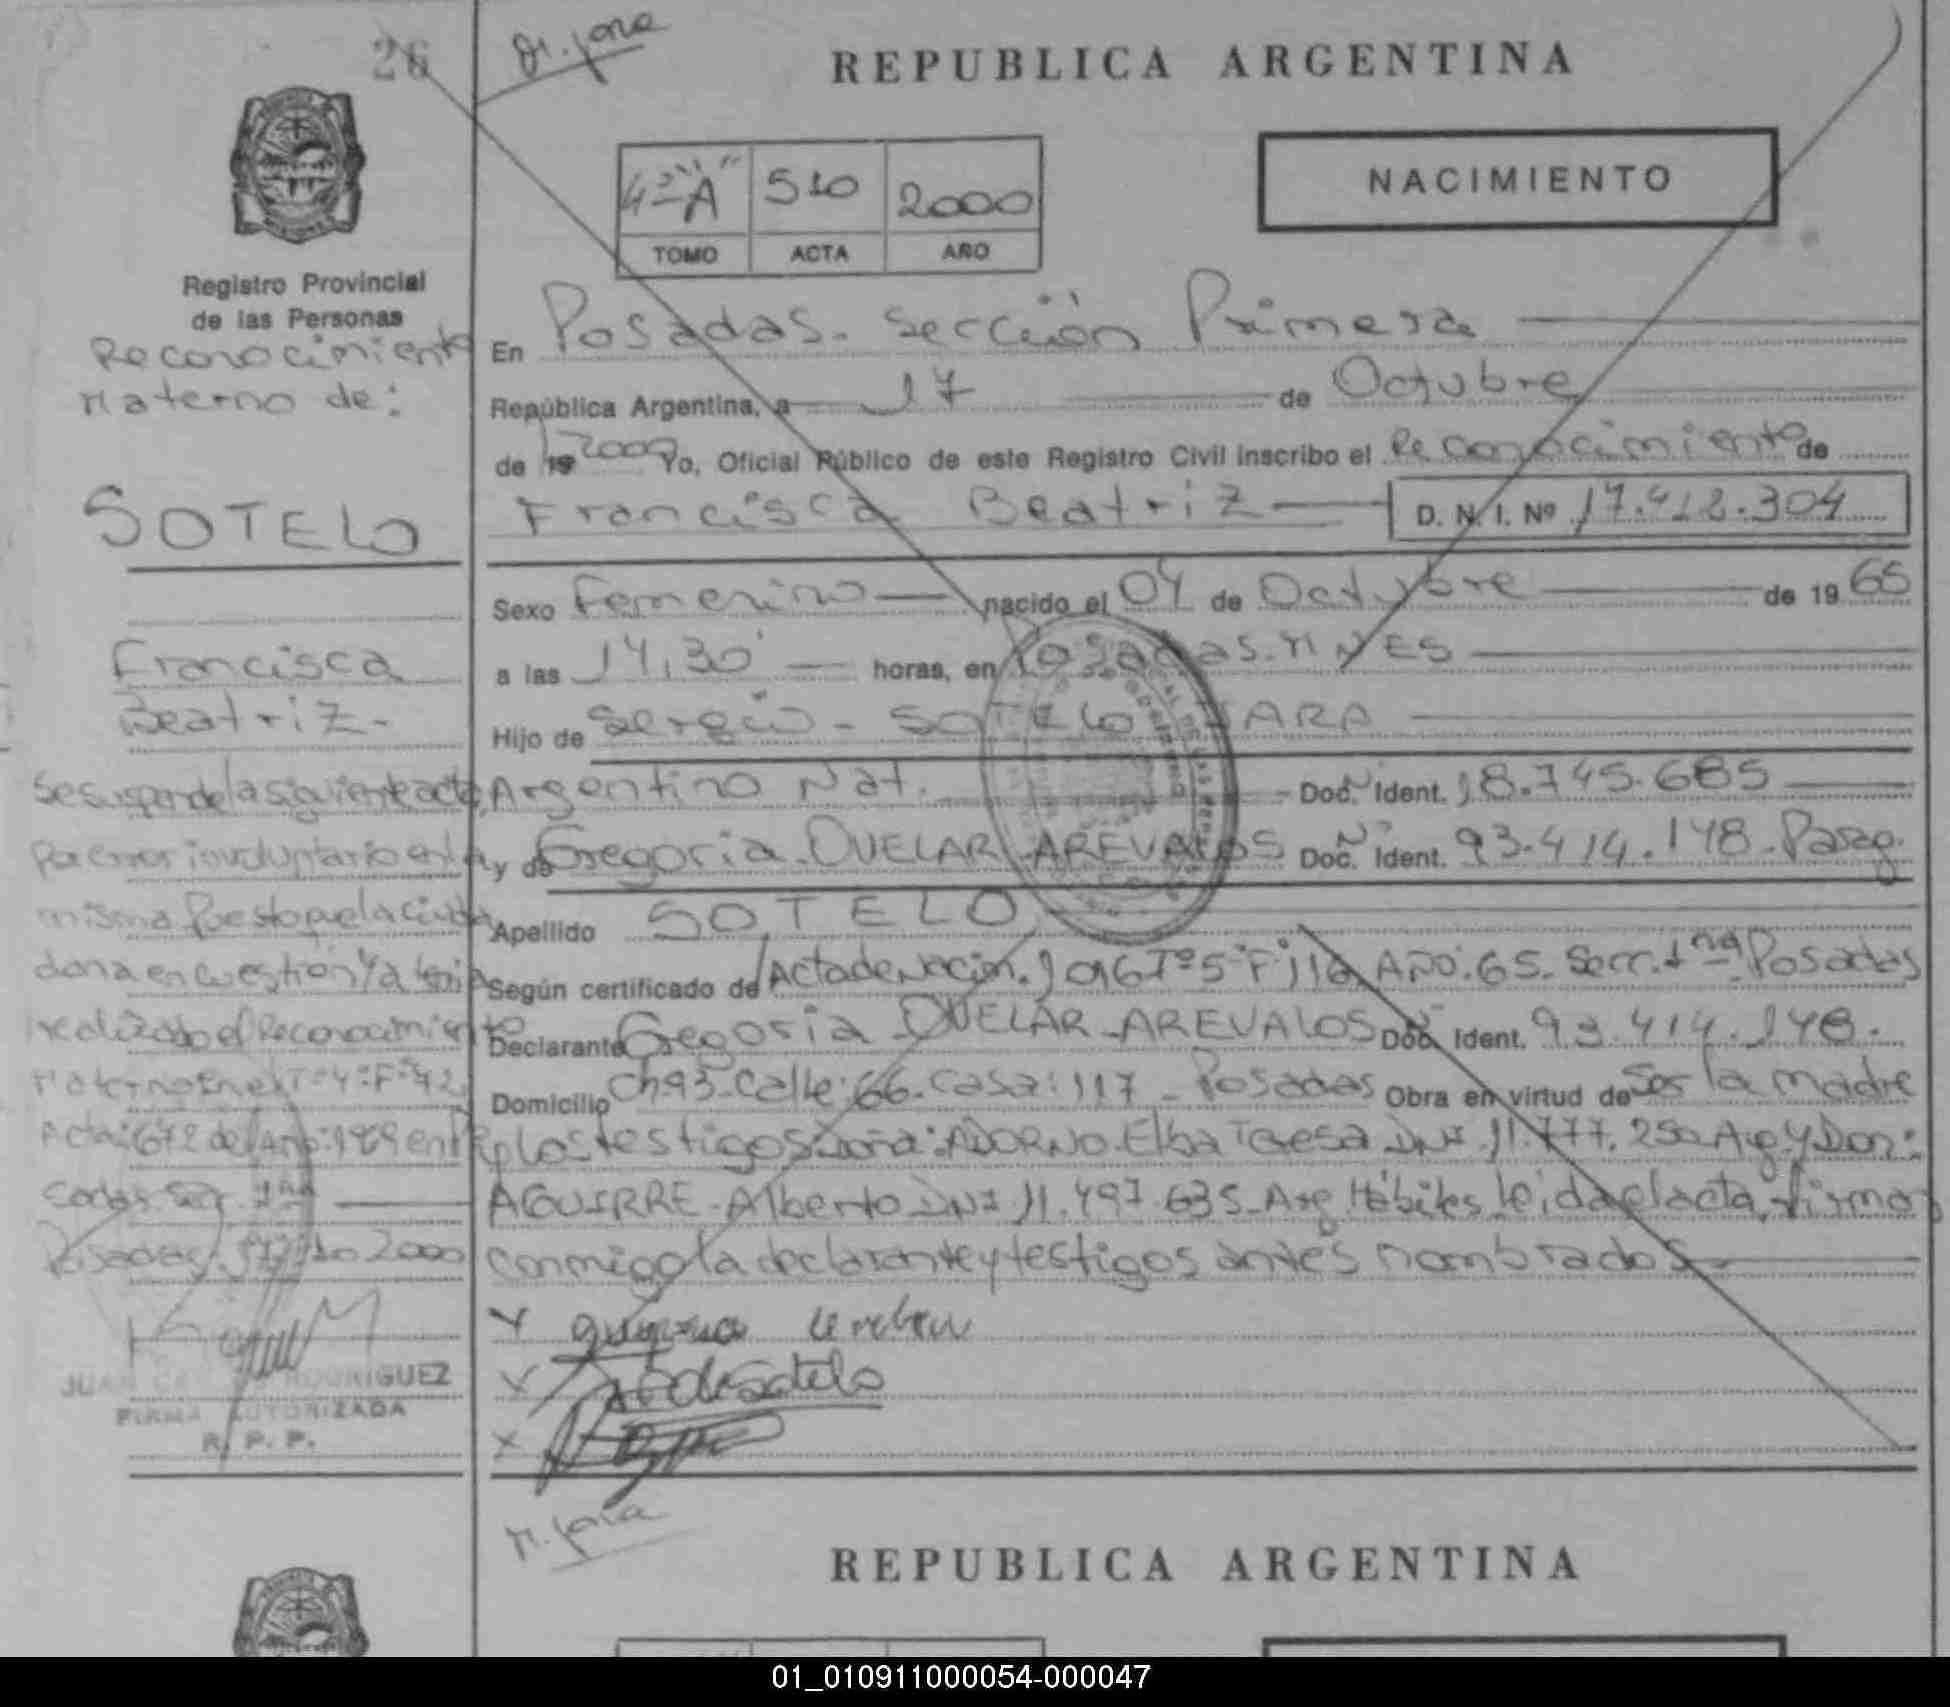 26
REPUBLICA ARGENTINA
NACIMIENTO
4º "A" 510 2000
TOMO ACTA AÑO
Registro Provincial
de las Personas
Reconocimiento
Materno de:
SOTELO
Francisca
Beatriz.-
Se suspende la siguiente acta,
por error involuntario en la
misma puesto que la ciuda
dana en cuestión ya tenia
realizado el Reconocimiento
Materno en el Tº4º Fº 42
Acta: 672 del Año: 1989 en Po
sadas Secc. 1ra
Posadas, 17/10 2000
JUAN CARLOS RODRIGUEZ
FIRMA AUTORIZADA
R. P. P.
En Posadas. Sección Primera
República Argentina, a 17 de Octubre
de 19 2000 Yo, Oficial Público de este Registro Civil inscribo el Reconocimiento de
Francisca Beatriz D. N. I. Nº 17.412.304
Sexo Femenino nacido el 04 de Octubre de 19 65
a las 14,30 horas, en Posadas. MNES
Hijo de Sergio - SOTELO JARA
Argentino Nat. Doc. Ident. Nº 18.745.685
y de Gregoria OVELAR AREVALOS Doc. Ident. Nº 93.414.148. Parag.
Apellido SOTELO
Según certificado de Acta de Nacim. 1016 Tº5º Fº 116 AÑO: 65. Secc. 1na Posadas
Declarante Gregoria OVELAR AREVALOS Doc. Ident. Nº 93.414.148.
Domicilio Ch 93. Calle: 66. Casa: 117 - Posadas Obra en virtud de ser la madre
y los testigos Doña: ADORNO Elba Teresa DNI 11.777.250 Arg. y Don:
AGUIRRE Alberto DNI 11.497.635 Arg. Hábiles. Leida el acta, firman
conmigo la declarante y testigos antes nombrados
REPUBLICA ARGENTINA
01_010911000054-000047